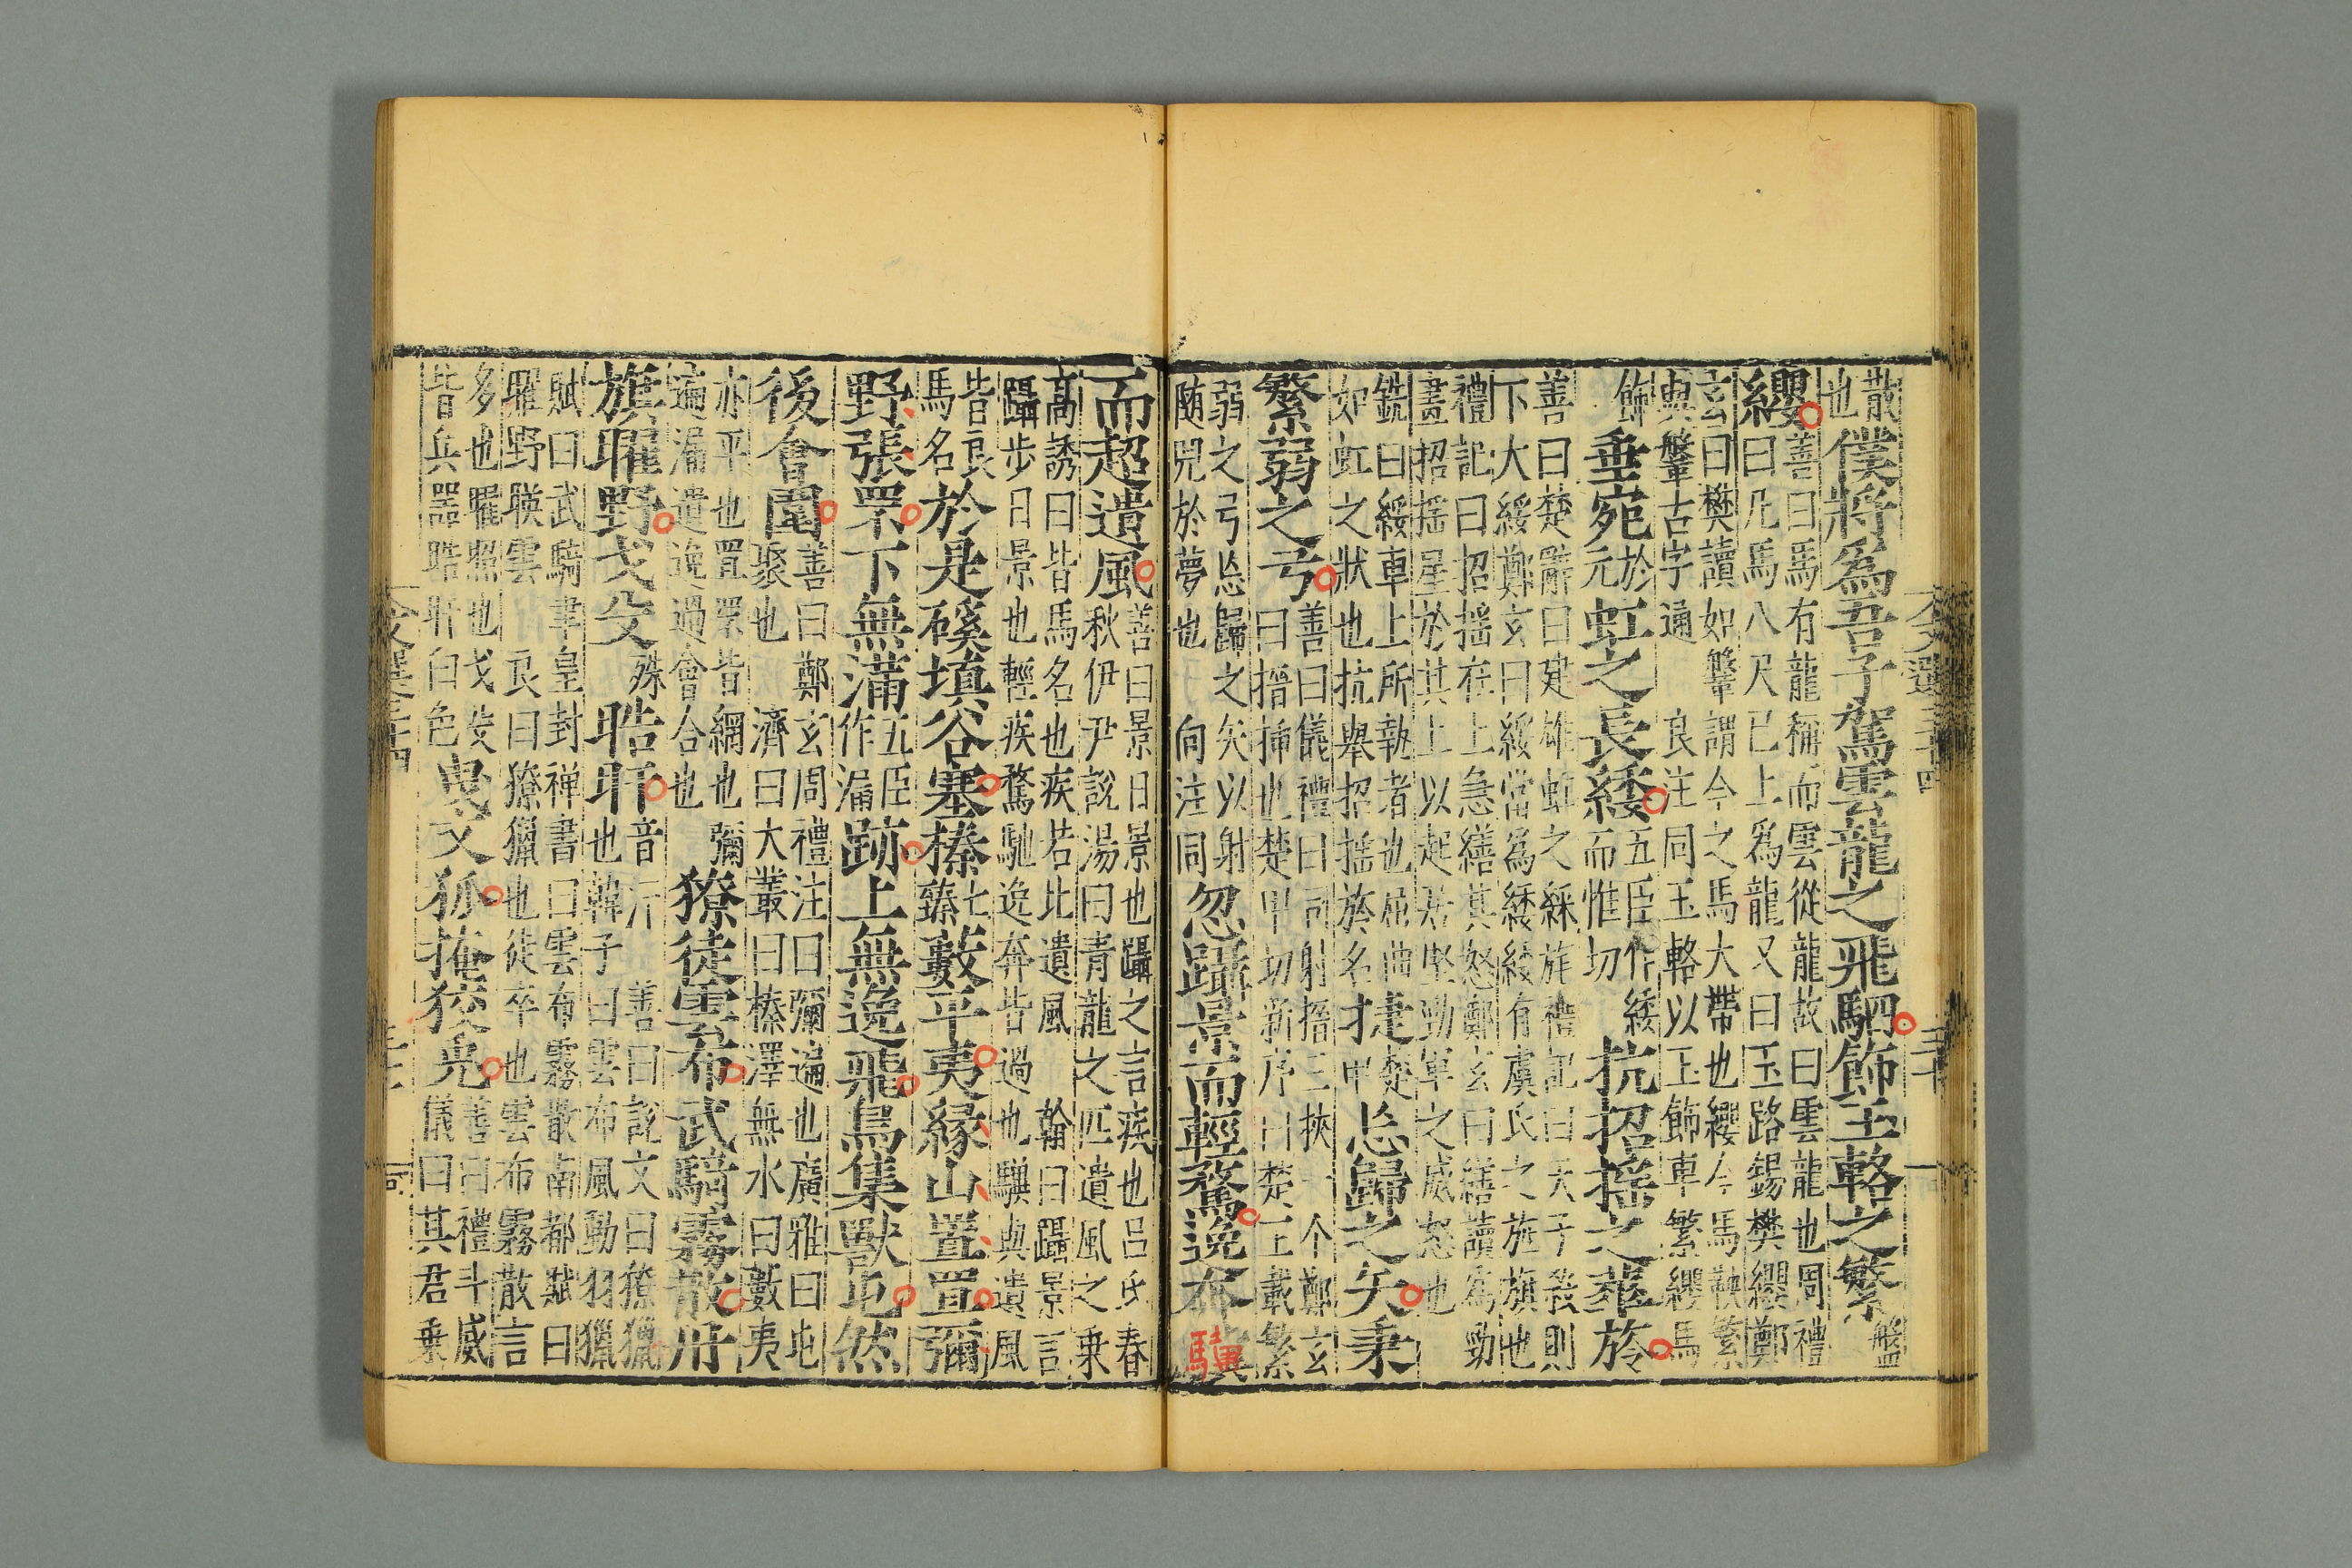 散
也
僕將爲吾子駕雲龍之飛駟飾玉輅之繁
盤
纓
善曰馬有龍稱而雲從龍故曰雲龍也周禮
曰凡馬八尺已上爲龍又曰玉路錫樊纓鄭
玄曰樊讀如鞶謂今之馬大帶也纓今馬鞅繁
與鞶古字通 良注同玉輅以玉飾車繁纓馬
飾
垂宛
於
元
虹之長緌
五臣作緌
而惟切
抗招搖之華旍
善曰楚辭曰建雄虹之綵旄禮記曰天子殺則
下大綏鄭玄曰綏當爲緌緌有虞氏之旌旗也
禮記曰招搖在上急繕其怒鄭玄曰繕讀爲勁
畫招搖星於其上以起居堅勁軍之威怒也
銑曰綏車上所執者也宛曲
如虹之狀也抗舉招搖旍名
捷
楚
才甲
忘歸之矢秉
繁弱之弓
善曰儀禮曰司射搢三挾一个鄭玄
曰搢插也楚甲切新序曰楚王載繁
弱之弓忘歸之矢以射
隨兕於夢也 向注同
忽躡景而輕騖逸奔驥
而超遺風
善曰景日景也躡之言疾也呂氏春
秋伊尹說湯曰青龍之匹遺風之乘
高誘曰皆馬名也疾若此遺風 翰曰躡景言
躡步日景也輕疾騖馳逸奔皆過也驥與遺風
皆良
馬名
於是磎填谷塞榛
七
臻
藪平夷緣山置罝彌
野張罘下無滿
五臣
作漏
跡上無逸飛鳥集獸屯然
後會圍
善曰鄭玄周禮注曰彌遍也廣雅曰屯
聚也 濟曰大叢曰榛澤無水曰藪夷
亦平也罝罘皆網也 彌
遍漏遺逸過會合也
獠徒雲布武騎霧散丹
旗曜野戈殳
殊
晧旰
音汗 善曰說文曰獠獵
也韓子曰雲布風動羽獵
賦曰武騎聿皇封禪書曰雲布霧散南都賦曰
曜野映雲 良曰獠獵也徒卒也雲布霧散言
多也曜照也戈殳
皆兵器晧旰白色
曳文狐掩狡兔
善曰禮斗威
儀曰其君乘